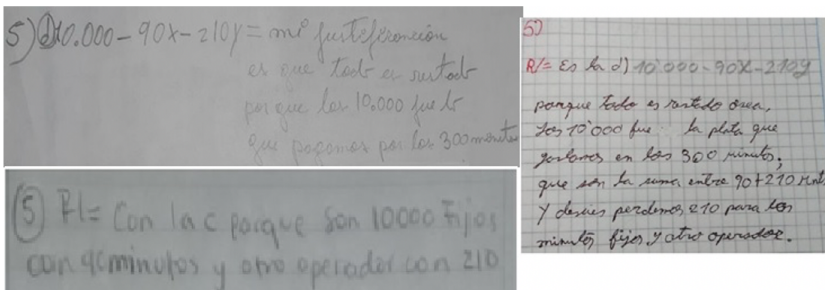 5) d) 10.000 - 90x - 210y = mi justificación
es que todo es restado
porque los 10.000 fue lo
que pagamos por los 300 minutos
5) R/= Con la c porque son 10000 Fijos
con 90 minutos y otro operador con 210
5)
R/= Es la d) 10'000 - 90X - 210y
porque todo es restado osea,
Los 10'000 fue la plata que
gastamos en los 300 minutos,
que son la suma entre 90+210 Mnts
Y perdemos 210 para los
minutos fijos y otro operador.